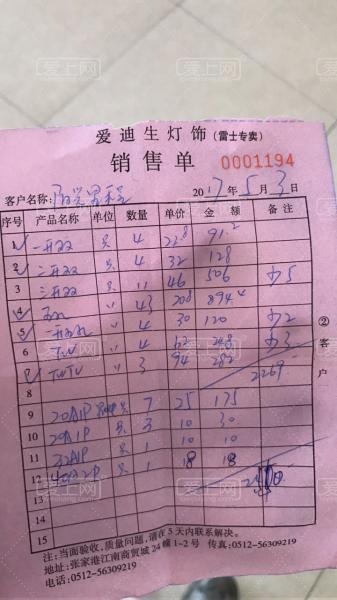 爱迪生灯饰(雷士专卖)
销售单 0001194
客户名称: 2017年5月3日
序号 产品名称 单位 数量 单价 金额 备注
1 一开双 只 4 22.8 91.2
2 二开双 只 4 32 128
3 三开双 只 11 46 506 少5
4 五孔 〃 43 20.8 894.4
5 〃 4 30 120 少2
6 〃 4 62 248 少3
7 〃 3 94 282
8 2269
9 20A1P 只 7 25 175
10 20A1P 只 3 10 30
11 32A1P 只 1 10 10
12 只 1 18 18
13
14
15
②客户
注:当面验收,质量问题,请在5天内联系解决。
地址:张家港江南商贸城24幢1-2号 传真:0512-56309219
电话:0512-56309219